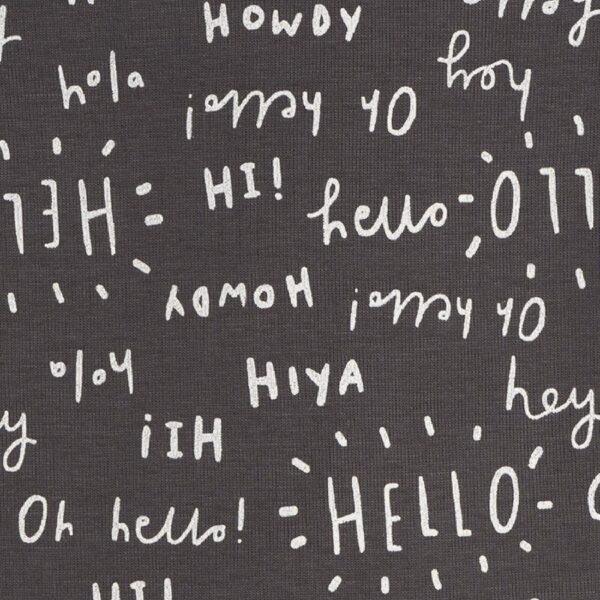 HOWDY
hola
hey
Oh hello!
HI!
HELLO
hello
HELLO
HOWDY
Oh hello!
hola
HIYA
hey
HI!
Oh hello!
HELLO
HI!